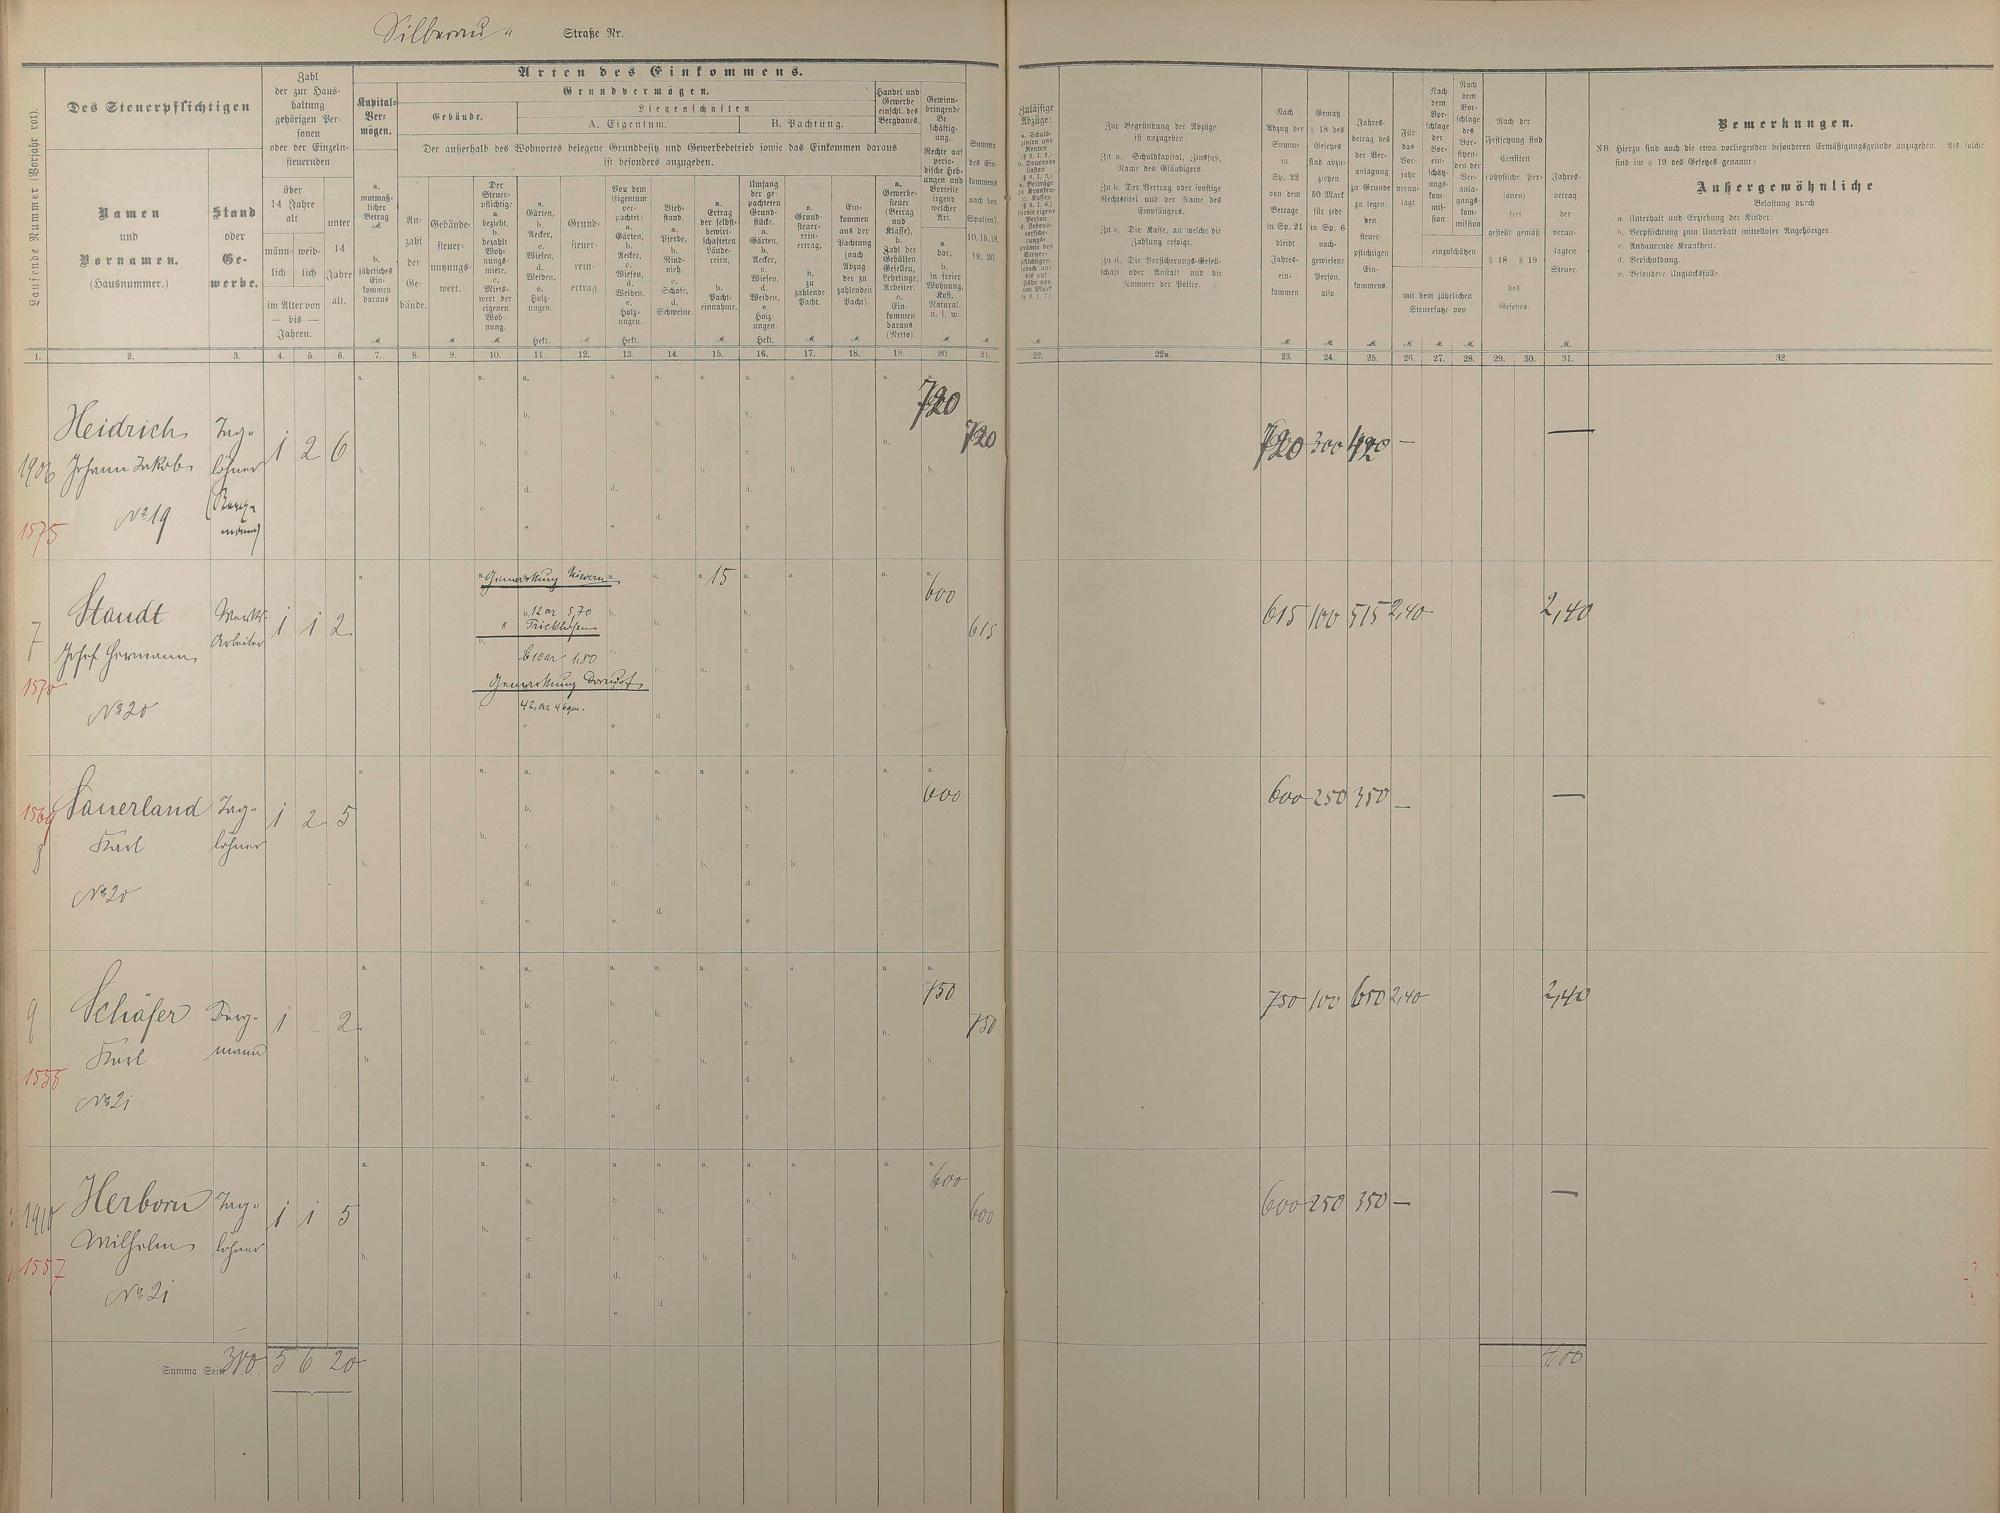 Silberau "
Straße Nr.
Laufende Nummer (Vorjahr rot).
Des Steuerpflichtigen
Namen
und
Vornamen.
(Hausnummer.)
Stand
oder
Ge-
werbe.
Zahl
der zur Haus-
haltung
gehörigen Per-
sonen
oder der Einzeln-
steuernden
über
14 Jahre
alt
männ-
lich
weib-
lich
im Alter von
— bis —
Jahren.
unter
14
Jahre
alt.
Arten des Einkommens.
Kapital-
Ver-
mögen.
a.
mutmaß-
licher
Betrag
M
b.
jährliches
Ein-
kommen
daraus
M
Grundvermögen.
Gebäude.
Liegenschaften
A. Eigentum.
B. Pachtung.
Der außerhalb des Wohnortes belegene Grundbesitz und Gewerbebetrieb sowie das Einkommen daraus
ist besonders anzugeben.
An-
zahl
der
Ge-
bäude.
Gebäude-
steuer-
nutzungs-
wert.
M
Der
Steuer-
pflichtige:
a.
bezieht,
b.
bezahlt
Woh-
nungs-
miete,
c.
Miets-
wert der
eigenen
Woh-
nung.
M.
a.
Gärten,
b.
Aecker,
c.
Wiesen,
d.
Weiden,
e.
Holz-
ungen.
Hekt.
Grund-
steuer-
rein-
ertrag.
M
Von dem
Eigentum
ver-
pachtet:
a.
Gärten,
b.
Aecker,
c.
Wiesen,
d.
Weiden,
e.
Holz-
ungen.
Hekt.
Vieh-
stand.
a.
Pferde,
b.
Rind-
vieh,
c.
Schafe,
d.
Schweine
a.
Ertrag
der selbst-
bewirt-
schafteten
Lände-
reien,
b.
Pacht-
einnahme.
M.
Umfang
der ge-
pachteten
Grund-
stücke.
a.
Gärten,
b.
Aecker,
c.
Wiesen,
d.
Weiden,
e.
Holz-
ungen.
Hekt.
a.
Grund-
steuer-
rein-
ertrag,
b.
zu
zahlende
Pacht.
M
Ein-
kommen
aus der
Pachtung
(nach
Abzug
der zu
zahlenden
Pacht).
M
Handel und
Gewerbe
einschl. des
Bergbaues.
a.
Gewerbe-
steuer
(Betrag
und
Klasse),
b.
Zahl der
Gehülfen,
Gesellen,
Lehrlinge,
Arbeiter,
c.
Ein-
kommen
daraus
(Netto).
Gewinn-
bringende
Be-
schäftig-
ung.
Rechte auf
perio-
dische Heb-
ungen und
Vorteile
irgend
welcher
Art.
a.
bar,
b.
in freier
Wohnung,
Kost,
Natural.
u. s. w.
M
Summe
des Ein-
kommens
nach den
Spalten 7,
10, 15, 18,
19, 20.
M
1. 2. 3. 4. 5. 6. 7. 8. 9. 10. 11. 12. 13. 14. 15. 16. 17. 18. 19. 20. 21.
Zulässige
Abzüge:
a. Schuld-
zinsen und
Renten
(§ 9. I. 2.)
b. Dauernde
Lasten
M
Zur Begründung der Abzüge
ist anzugeben:
Zu a. Schuldkapital, Zinsfuß,
Name des Gläubigers.
Zu b. Der Vertrag oder sonstige
Rechtstitel und der Name des
Empfängers.
Zu c. Die Kasse, an welche die
Zahlung erfolgt.
Zu d. Die Versicherungs-Gesell-
schaft oder Anstalt und die
Nummer der Police.
Nach
Abzug der
Summe
in
Sp. 22
von dem
Betrage
in Sp. 21
bleibt
Jahres-
ein-
kommen
M
Gemäß
§ 18 des
Gesetzes
sind abzu-
ziehen
50 Mark
für jede
in Sp. 6
nach-
gewiesene
Person,
also
M
Jahres-
betrag des
der Ver-
anlagung
zu Grunde
zu legen-
den
steuer-
pflichtigen
Ein-
kommens.
M
Für
das
Vor-
jahr
veran-
lagt
Nach
dem
Vor-
schlage
der
Vor-
ein-
schätz-
ungs-
kom-
mis-
sion
Nach
dem
Vor-
schlage
des
Vor-
sitzen-
den der
Ver-
anla-
gungs-
kom-
mission
einzuschätzen
mit dem jährlichen
Steuersatze von
M M M
Nach der
Festsetzung sind
Censiten
(physische Per-
sonen)
frei
gestellt gemäß
§ 18 § 19
des
Gesetzes.
Jahres-
betrag
der
veran-
lagten
Steuer.
M.
Bemerkungen.
NB Hierzu sind auch die etwa vorliegenden besonderen Ermäßigungsgründe anzugeben. Als solche
sind im § 19 des Gesetzes genannt:
Außergewöhnliche
Belastung durch
a. Unterhalt und Erziehung der Kinder.
b. Verpflichtung zum Unterhalt mittelloser Angehöriger.
c. Andauernde Krankheit.
d. Verschuldung.
e. Besondere Unglücksfälle.
22. 22a. 23. 24. 25. 26. 27. 28. 29. 30. 31. 32.
1906 Heidrich Tag- 1 2 6 720 720 720 300 420 — —
Johann Jakob löhner
No 19 (Berg-
mann)
1575
7 Staudt Werks- 1 1 2 Gemarkung Nievern 15 600 615 615 100 515 2,40 2,40
Josef Hermann Arbeiter
b. 12 ar 5,70
" Frickhofen
b 10 ar 1,80
Gemarkung Dorndorf
42 ar 46 qm.
1570
No 20
1569 Sauerland Tag- 1 2 5 600 600 250 350 — —
8 Karl löhner
No 20
9 Schäfer Berg- 1 2 2 750 750 750 100 650 2,40 2,40
Karl mann
No 21
Herborn Tag- 1 1 5 600 600 600 250 350 — —
Wilhelm löhner
1557
No 21
Summa Seite 5 6 20